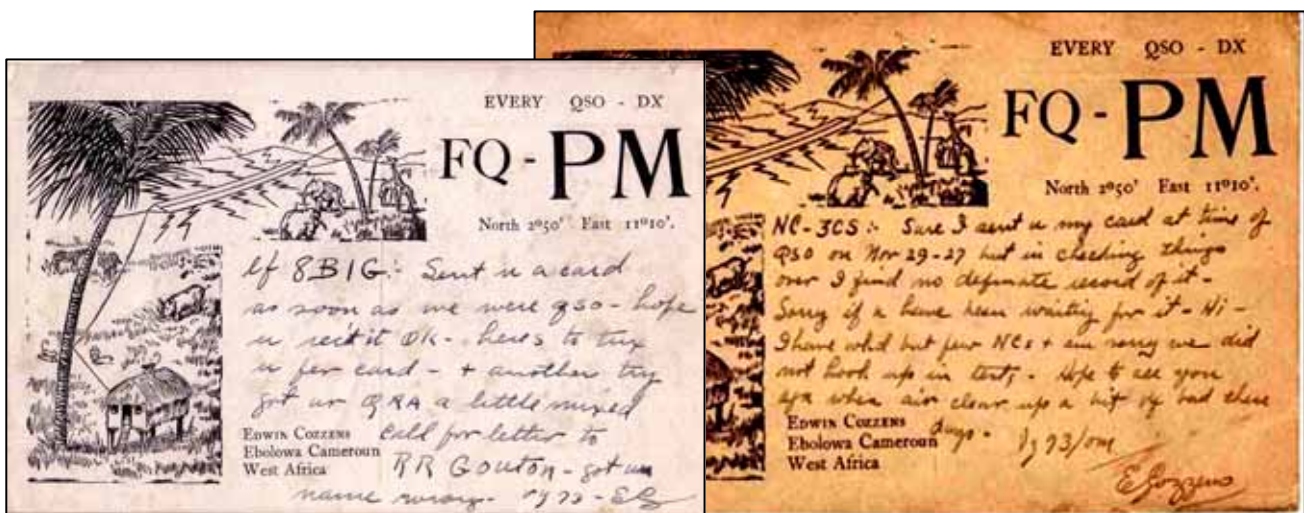 EVERY QSO - DX
FQ - PM
North 2º50' East 11º10'.
ef 8BIG:- Sent u a card
as soon as we were qso - hope
u rec't it OK - heres to tnx
u for card - + another try
got ur QRA a little mixed
call for letter to
RR Gouton - got ur
name wrong - vy 73 - EC
EDWIN COZZENS
Ebolowa Cameroun
West Africa
EVERY QSO - DX
FQ - PM
North 2º50' East 11º10'.
NC-3CS:- Sure I sent u my card at time of
QSO on Nov 29-27 but in checking things
over I find no definate record of it -
Sorry if u have been waiting for it - Hi -
I have wkd but few NCs + am sorry we did
not hook up in tests, - Hope to see you
agn when air clear up a bit vy bad these
days - Vy 73/om
EDWIN COZZENS
Ebolowa Cameroun
West Africa
E Cozzens